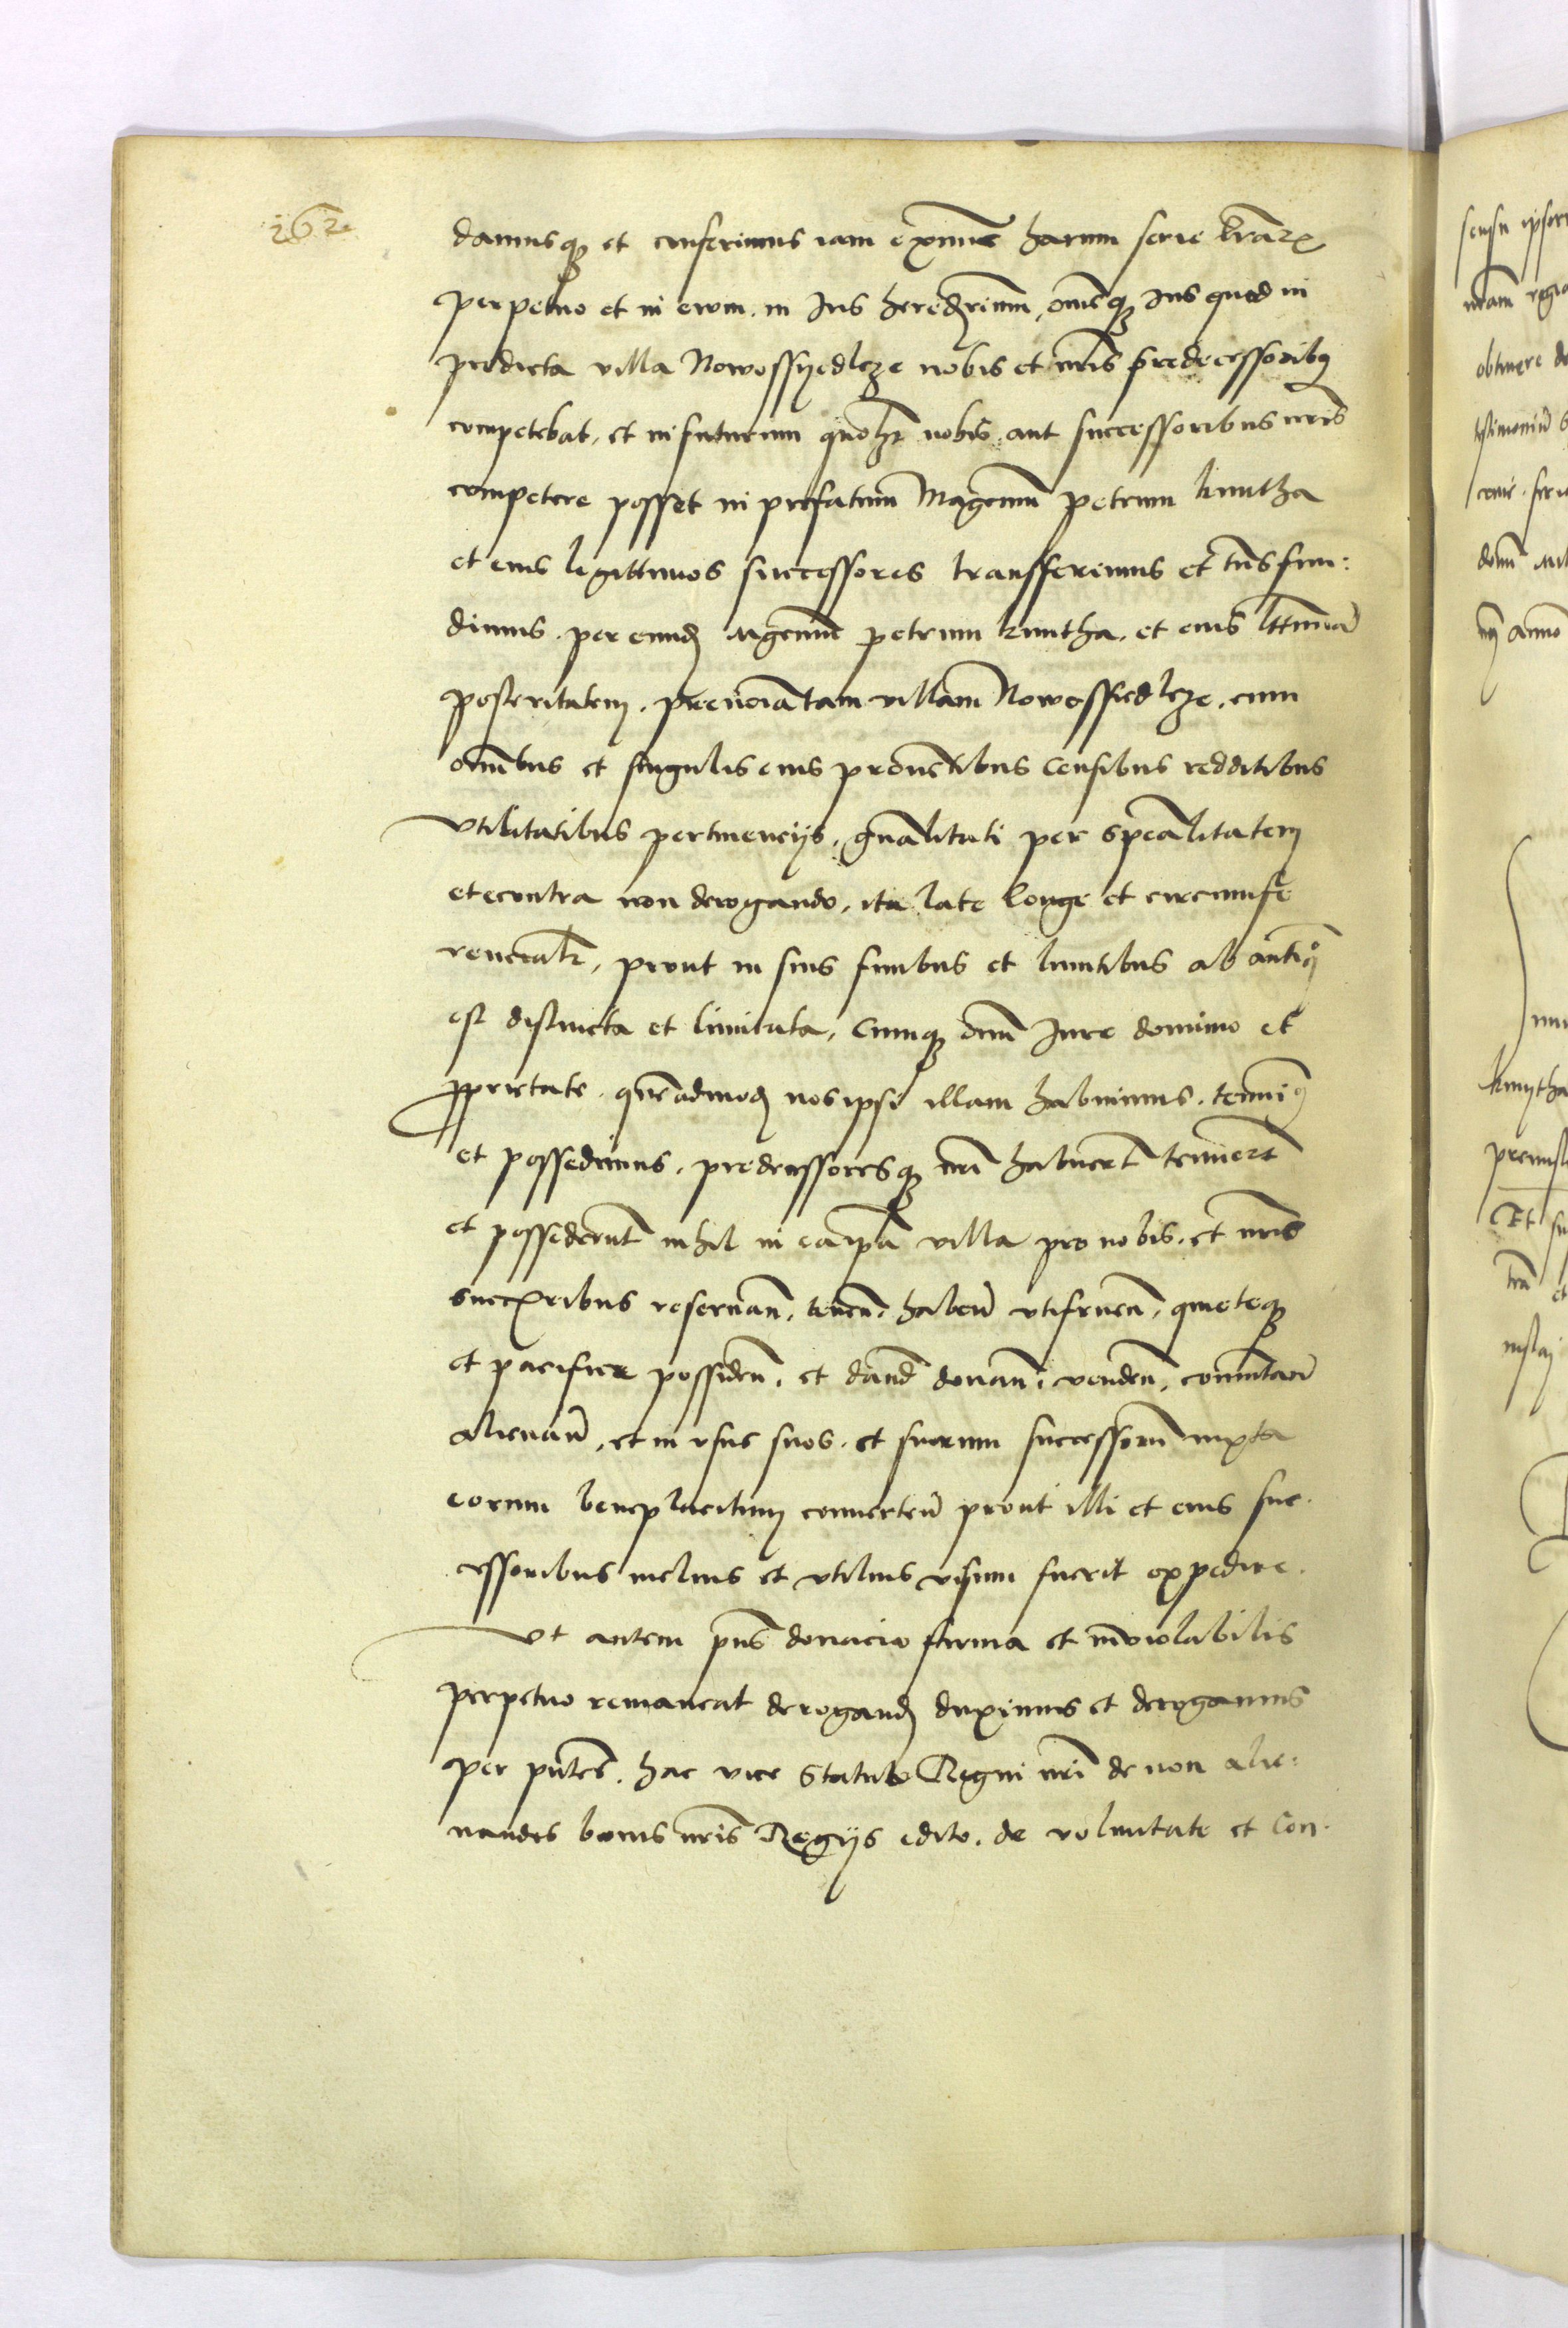 262
damusq3 et conferimus iam ex nunc harum serie l̃rar̃
perpetuo et in evum. in Ius hereditarium, om̃eq3 Ius quod in
predicta villa Nowossyedlcze nobis et nr̃is predecessorib9
competebat, et in futurum quol3 nobis aut successoribus nr̃is
competere posset in prefatum Mag̃cum petrum kmitha
et eius legittimos successores transferimus et tr̃nsfun:
dimus. per eund̃ M̃gcum petrum kmitha. et eius l̃ttimam
posteritatem. preno̅iatam villam Nowossiedlcze, cum
om̃ibus et singulis eius prouentibus Censibus redditibus
vtilitatibus pertinencijs. g̃nalitati per sp̃ealitatem
et econtra non derogando, ita late longe et circumfe
rencial̃r, prout in suis finibus et limitibus ab antiq°
est distincta et limitata, Cumq3 om̃i Iure dominio et
proprietate. quẽadmod̃ nos ipsi illam habuimus. tenuim9
et possedimus. predecessoresq3 nr̃i habuer̃t tenuer̃t
et possederunt̃ nihil in ea ip̃a villa pro nobis. et nr̃is
succ̃oribus reseruan̄. tenen̄. haben̄ vtifruen̄. quieteq3
et pacifice possiden̄. et dand̃ donan̄. venden̄. commutan̄
alienan̄, et in vsus suos. et suorum successorum̃ iuxta
eorum beneplacitum conuerten̄ prout illi et eius suc.
cessoribus melius et vtilius visum fuerit expedire.
Vt autem pñs donacio firma et inviolabilis
perpetuo remaneat derogand̃ duximus et derogamus
per pñtes. hac vice Statuto Regni nr̃i de non alie:
nandis bonis nr̃is Regijs edito. de voluntate et Con.